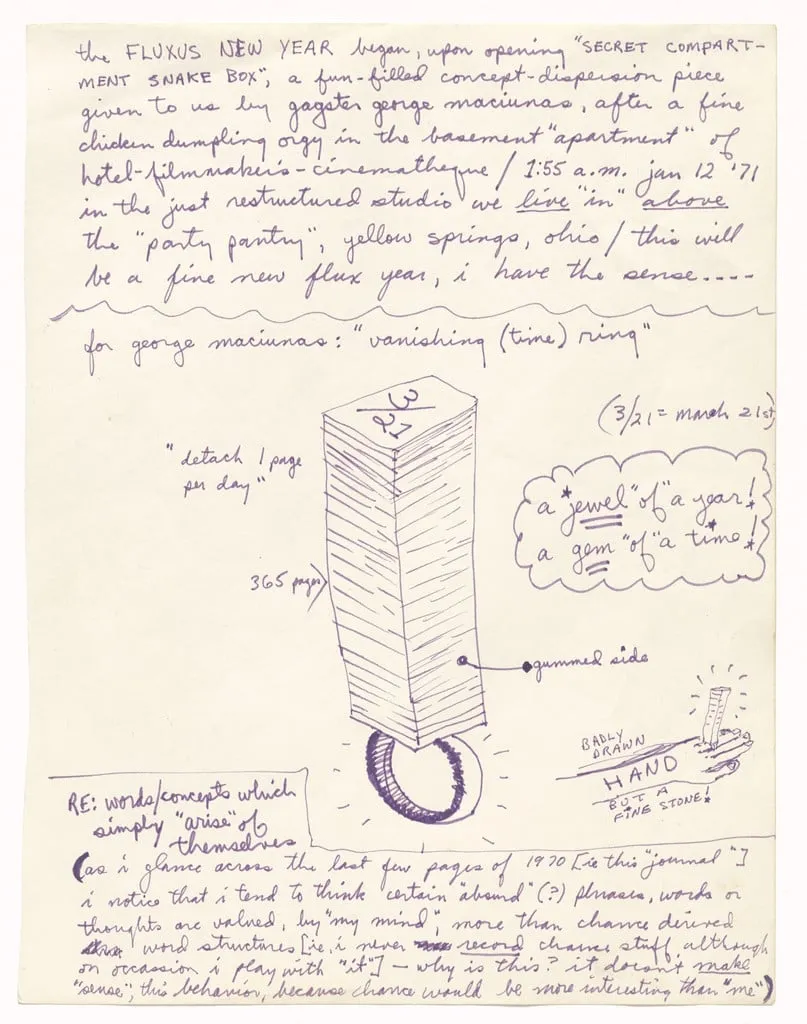 the FLUXUS NEW YEAR began, upon opening "SECRET COMPART-
MENT SNAKE BOX", a fun-filled concept-dispersion piece
given to us by gagster george maciunas, after a fine
chicken dumpling orgy in the basement "apartment" of
hotel-filmmaker's-cinematheque / 1:55 a.m. jan 12 '71
in the just restructured studio we live "in" above
the "party pantry", yellow springs, ohio / this will
be a fine new flux year, i have the sense....
for george maciunas: "vanishing (time) ring"
3/21
(3/21 = march 21st)
"detach 1 page
per day"
a "jewel" of "a year!
a gem "of" a time!
365 pages
gummed side
BADLY
DRAWN
HAND
BUT A
FINE STONE!
RE: words/concepts which
simply "arise" of
themselves
(as i glance across the last few pages of 1970 [ie this "journal"]
i notice that i tend to think certain "absurd" (?) phrases, words or
thoughts are valued, by "my mind", more than chance derived
word structures [ie, i never record chance stuff although
on occassion i play with "it"] – why is this? it doesn't make
"sense", this behavior, because chance would be more interesting than "me")